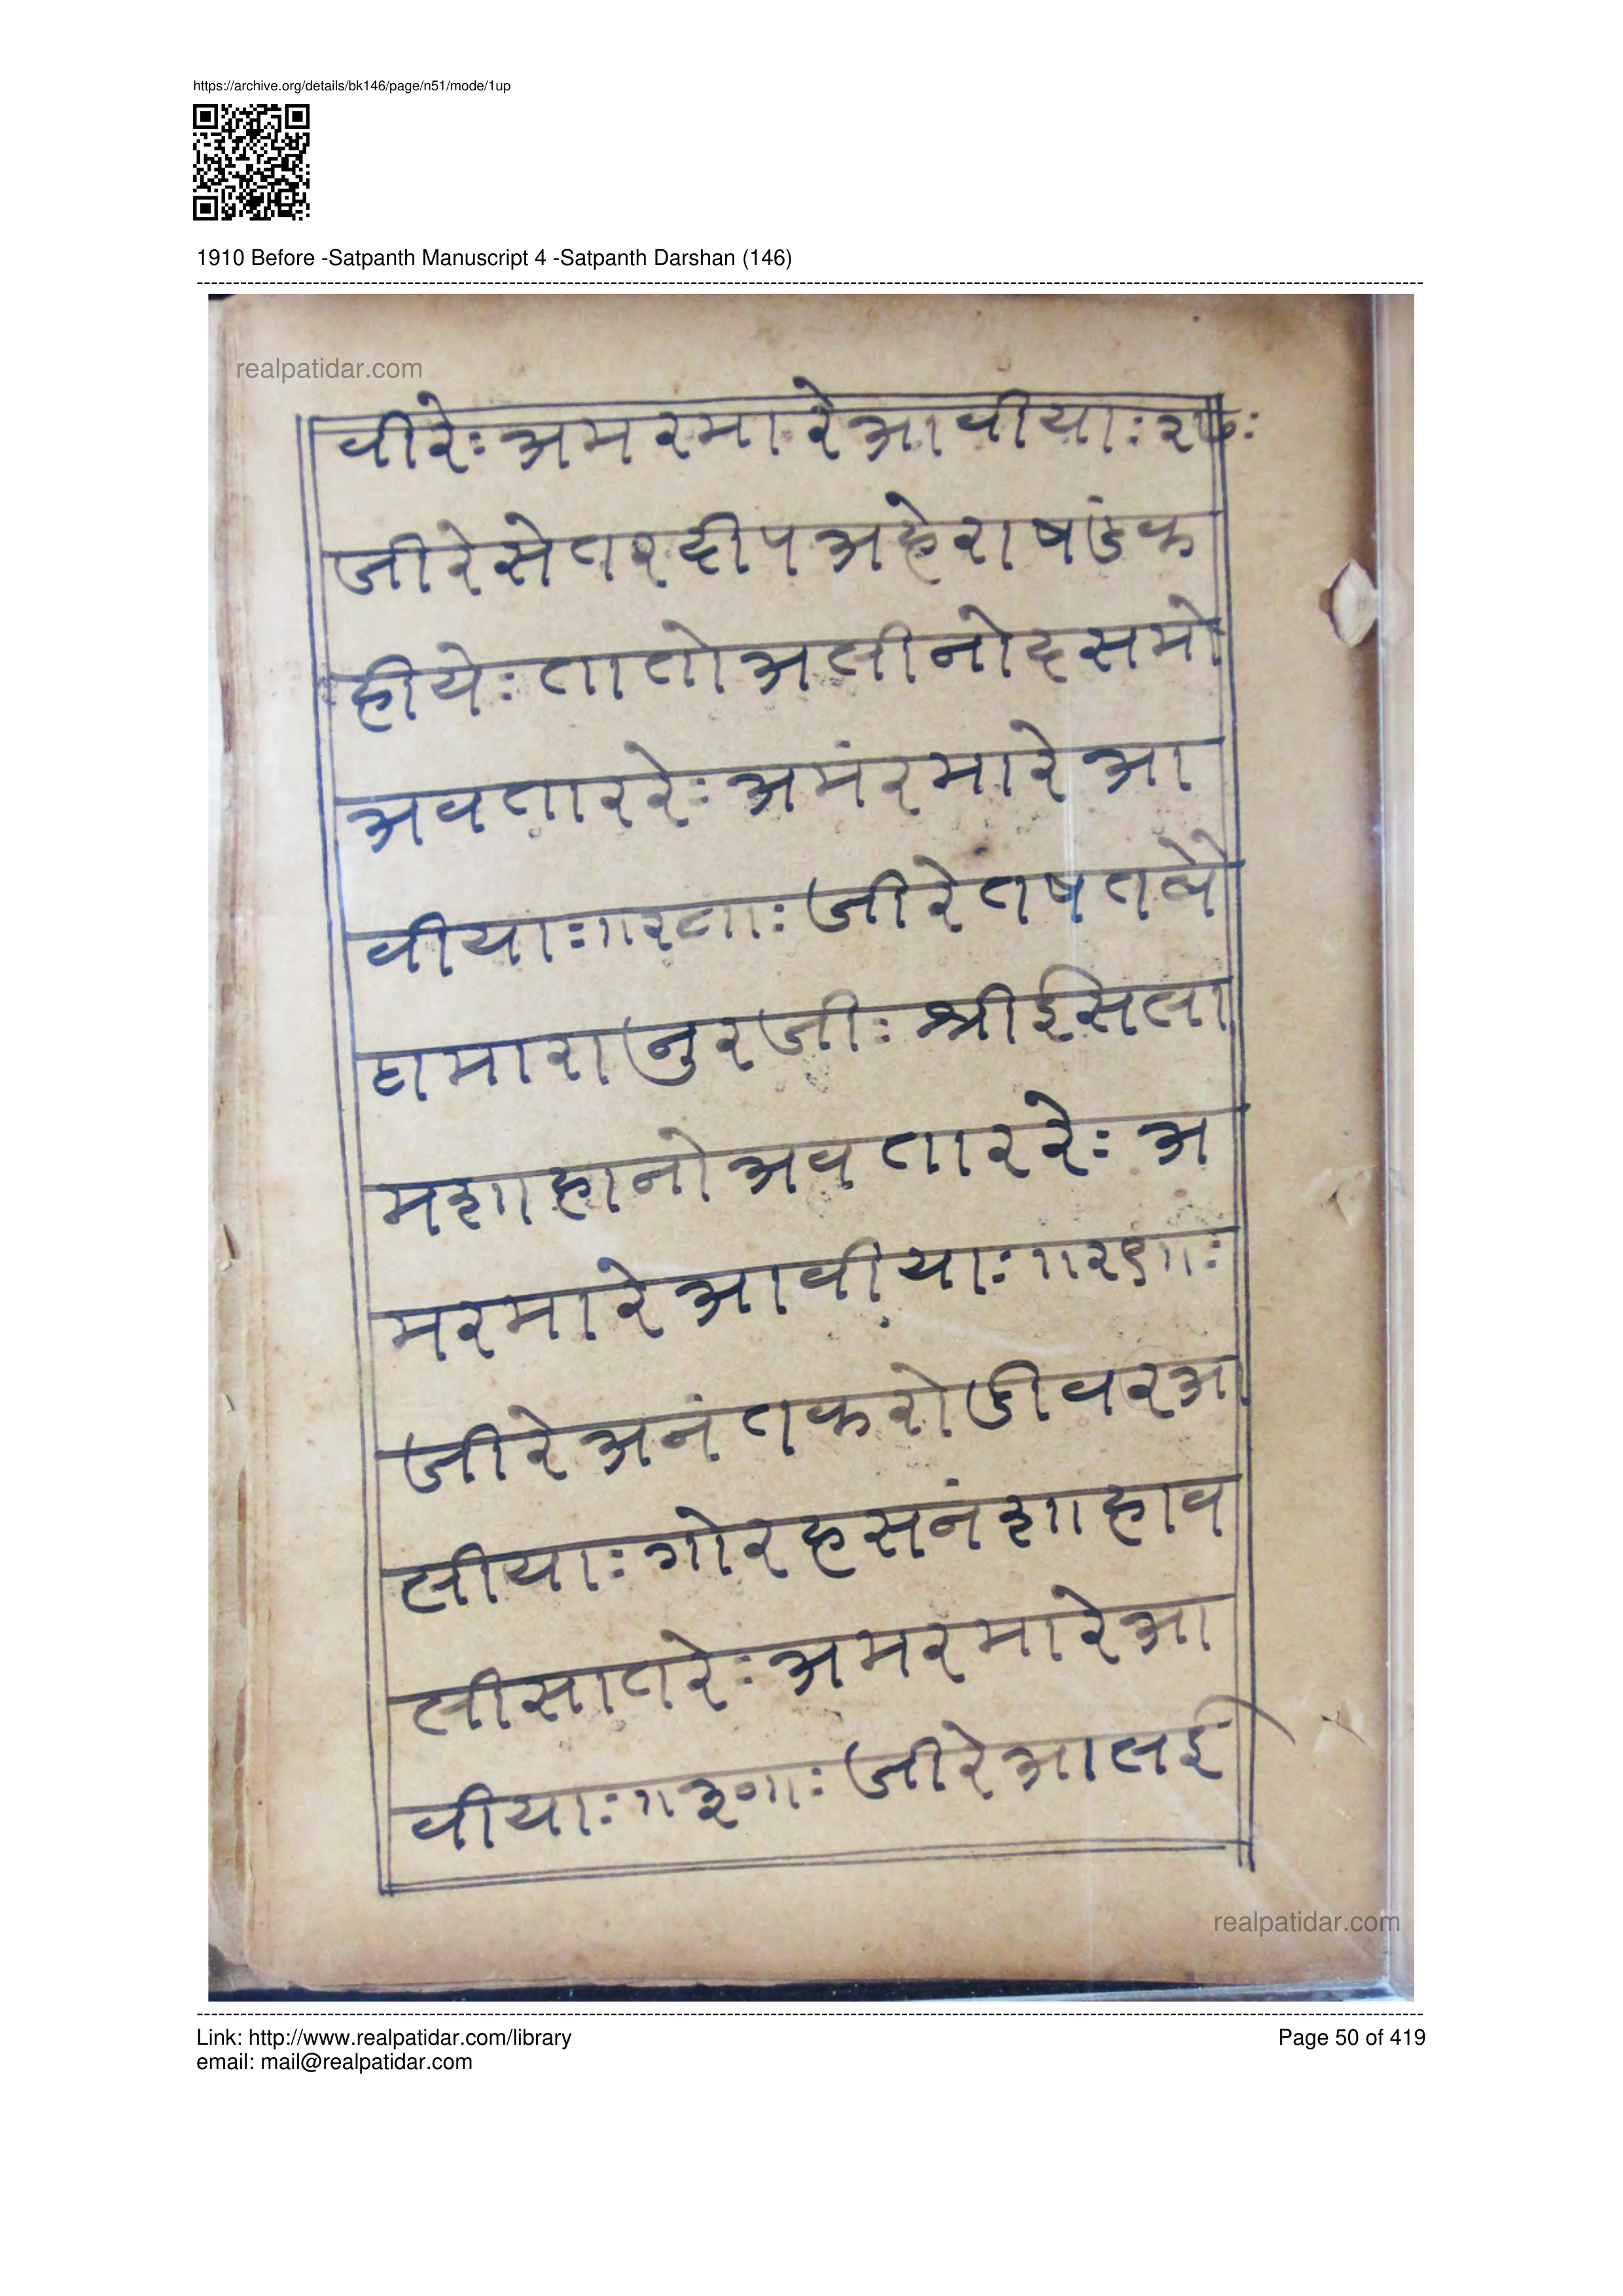 https://archive.org/details/bk146/page/n51/mode/1up
1910 Before -Satpanth Manuscript 4 -Satpanth Darshan (146)
realpatidar.com
वीरेः अमरमारेआवीयाः२७ः
जीरेसेतरदीपअहेराषडंक
हीयेः तातोअलीनोदसमो
अवताररेः अमंरमारेआ
वीयाः॥२८॥ः जीरेतषतबे
ठामारानुरजीः श्रीईसिला
मशाहानोअवताररेः अ
मरमारेआवीयाः॥२९॥ः
जीरेअनंतकरोडीवरआ
लीयाः गोरहसनंशाहाव
लीसातरेः अमरमारेआ
वीयाः॥३०॥ः जीरेआलई
realpatidar.com
Link: http://www.realpatidar.com/library
Page 50 of 419
email: mail@realpatidar.com